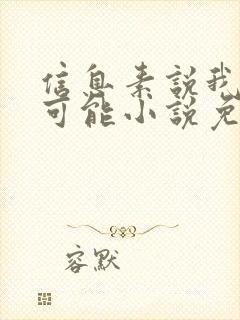 信息素說我
可能小說免
容默